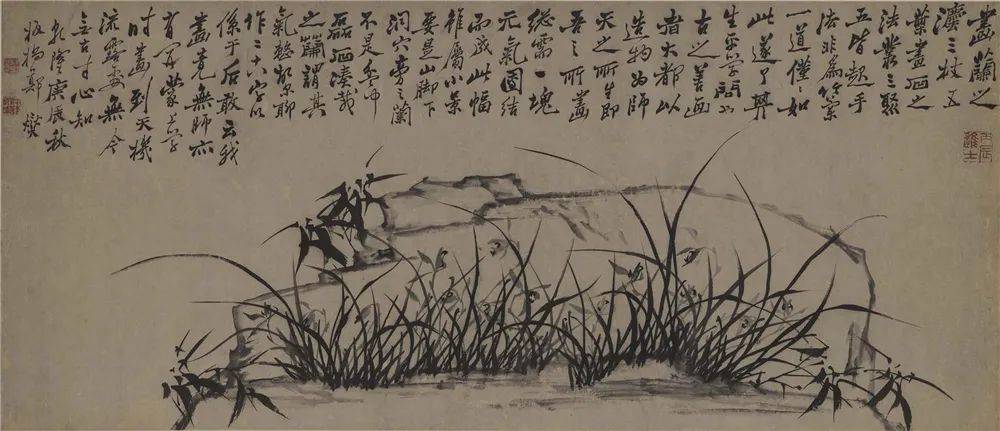 畫蘭之
灋三枝五
葉畫石之
法叢三聚
五皆起手
法非為竹蘭
一道僅〻如
此遂了其
生平學問也
古之善画
者大都以
造物為師
天之所生即
吾之所畫
総需一塊
元氣團結
而成此幅
雖屬小景
要是山脚下
洞穴旁之蘭
不是盆中
磊石湊栽
之蘭謂其
氣整故爾聊
作二十八字以
係于后敢云我
畫竟無師亦
有開蒙上學
時畫到天機
流露處無今
無古寸心知
乾隆庚辰秋
板橋鄭燮